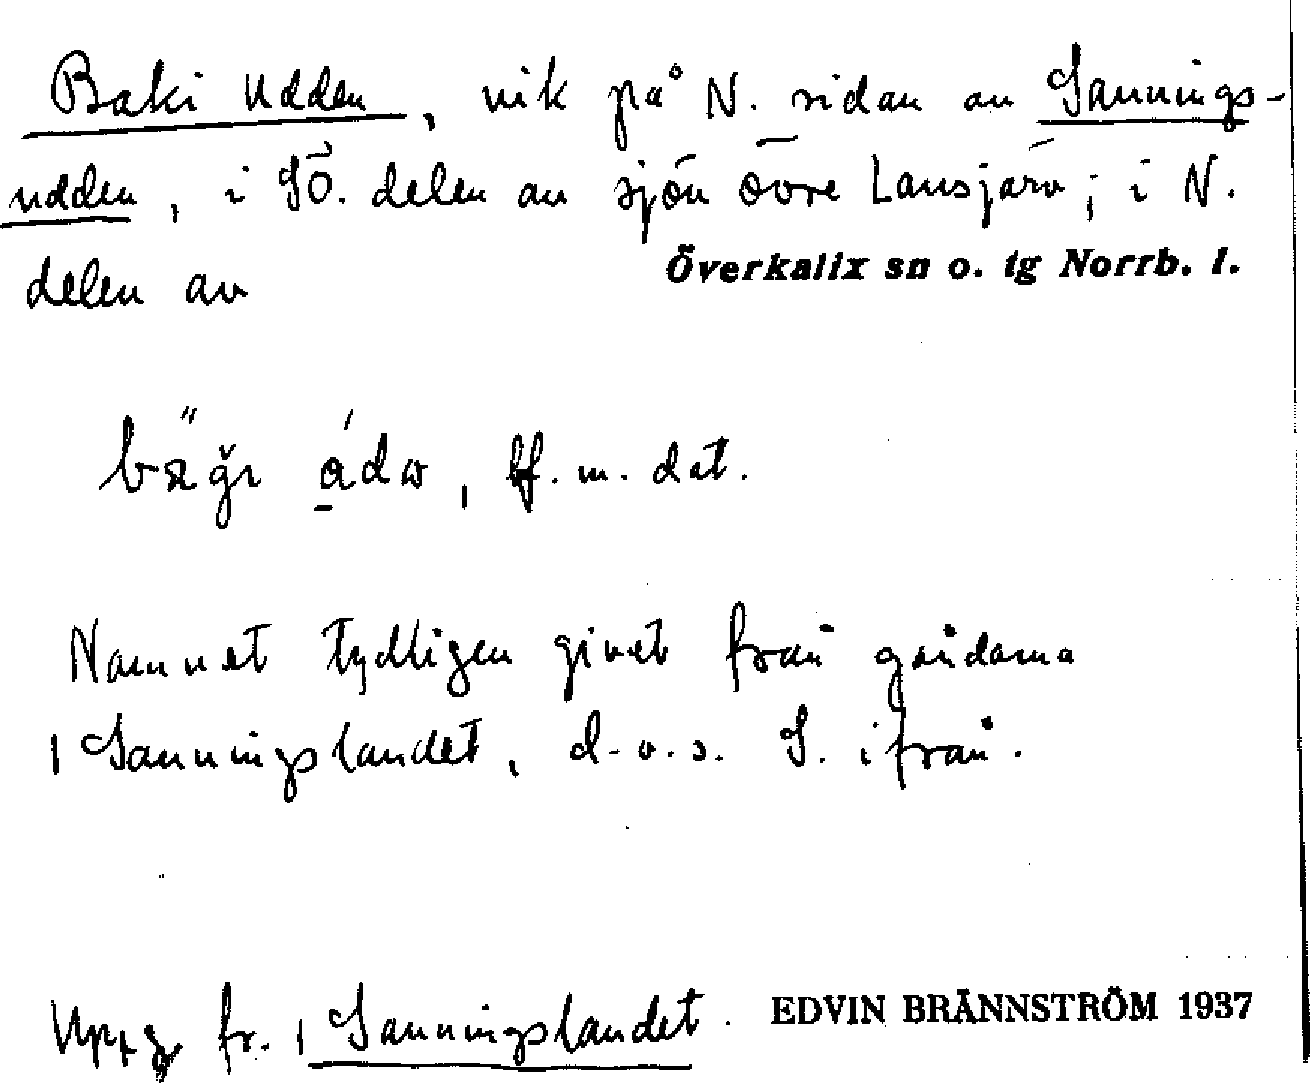 Baki Udden, vik på N. sidan av Sannings-
udden, i SÖ. delen av sjön Övre Lansjärv; i N.
delen av Överkalix sn o. tg Norrb. l.
, bf. m. dat.
Namnet tydligen givet från gårdarna
i Sanningslandet, d.v.s. S. ifrån.
Uppg. fr. i Sanningslandet. EDVIN BRÄNNSTRÖM 1937